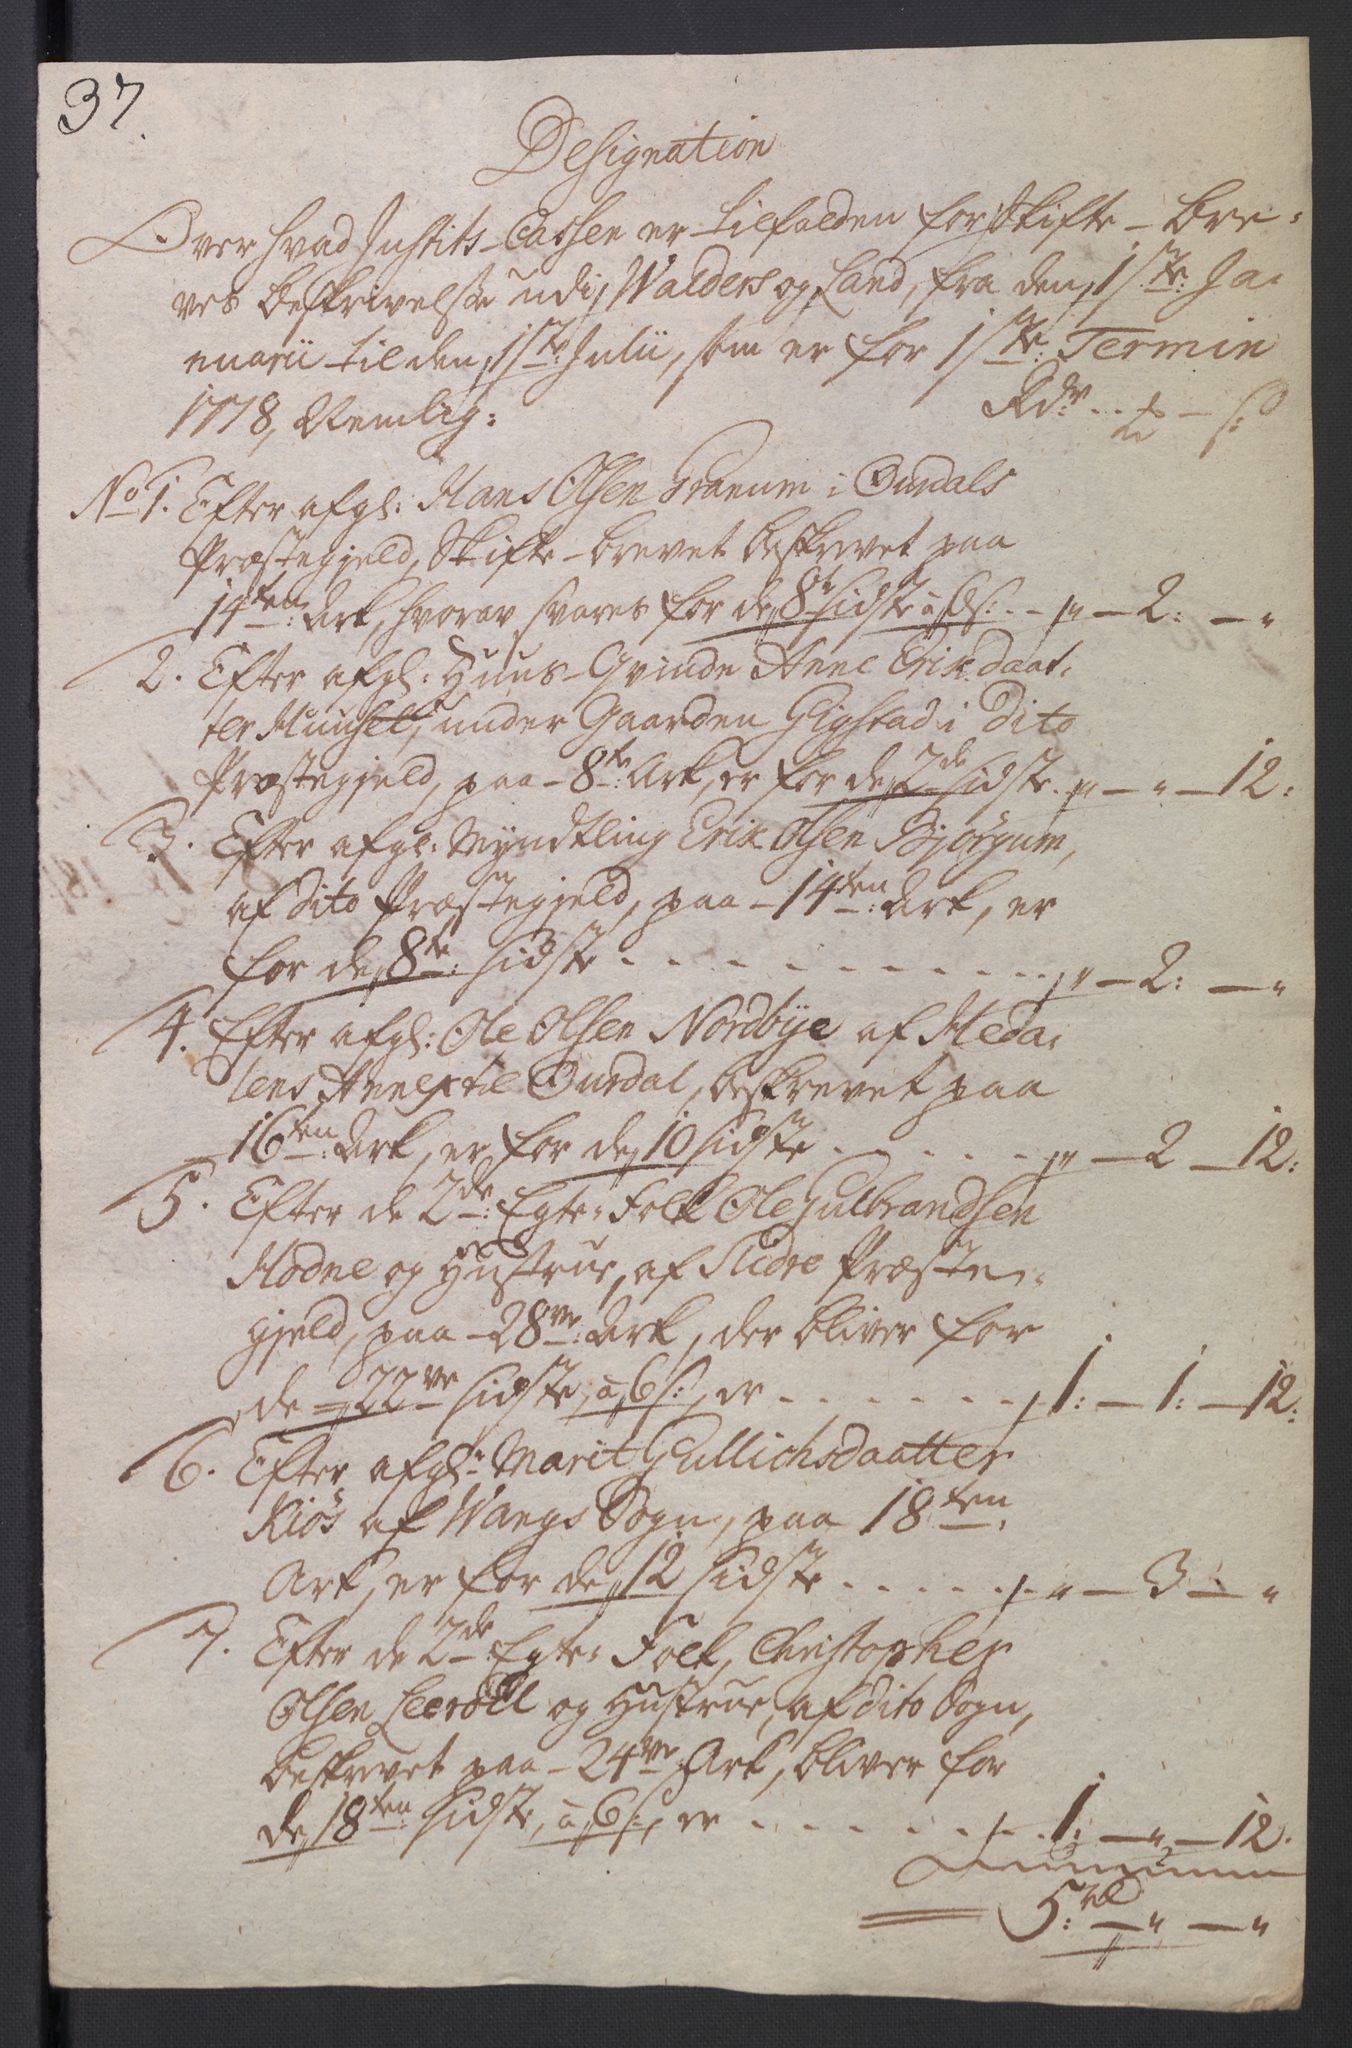 37.
Designation
Over hvad Justits-Cassen er tilfalden for Skifte-Bre-
ves Beskrivelse udi Walders og Land, fra den 1ste: Ja-
nuarii til den 1ste Julii, som er for 1ste: Termin
1778, Nemlig:
Rdr ... - s:
No 1. Efter afgl: Hans Olsen Granum i Ourdals
Præstegjeld, Skifte-brevet beskrevet paa
14ten: Ark, hvorav svares for de 8te sidste à 6 s: .. - " - 2: - "
2. Efter afgl: Huus-Qvinde Anne Eriksdaat-
ter under Gaarden Gigstad i Dito
Præstegjeld, paa - 8te: Ark, er for de 2de sidste . " - " - 12:
3. Efter afgl: Myndtling Erik Olsen Bjørgum,
af dito Præstegjeld, paa - 14ten: Ark, er
for de 8te: sidste . . . . . . . . " - 2: - "
4. Efter afgl: Ole Olsen Nordbÿe af Heda-
lens Annex til Ourdal, beskrevet paa
16ten: Ark, er for de 10 sidste . . . . . " - 2 - 12:
5. Efter de 2de: Egte-Folk Ole Gulbrandsen
Hodne og Hustrue, af Slidre Præste-
gjeld, paa - 28ve: Ark, der bliver for
de 22ve sidste, à 6 s:, er . . . . . . 1: - 1: - 12:
6. Efter afgl: Marit Gullichsdaatter
Kiøs af Wangs Sogn, paa 18ten
Ark, er for de 12 sidste . . . . . . " - 3 - "
7. Efter de 2de Egte-Folk, Christopher
Olsen Leerøll og Hustrue, af dito Sogn,
beskrevet paa - 24ve Ark, bliver for
de 18ten: sidste, à 6 s:, er . . . . . . 1: - " - 12.
Summa
5: rd - " - "